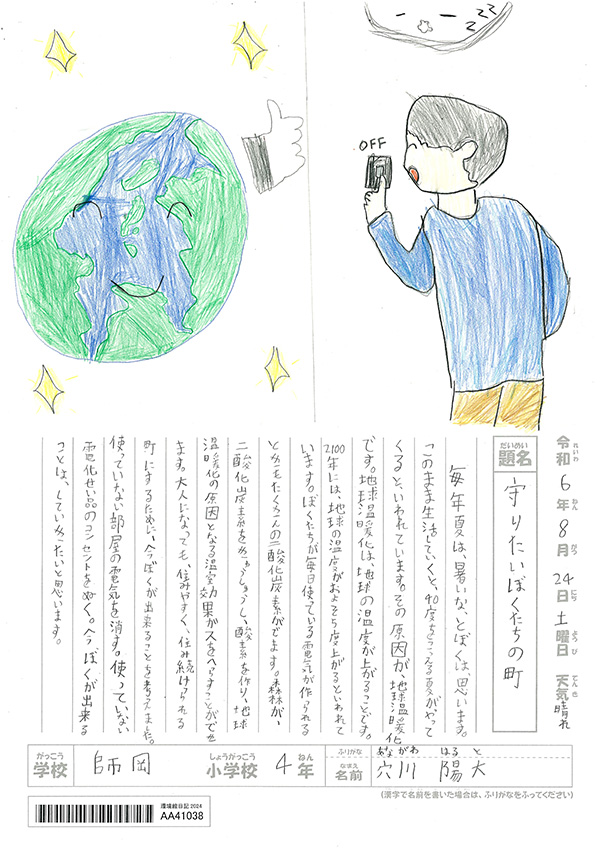 OFF
令和6年8月24日土曜日 天気晴れ
れいわ ねん がつ にち ようび てんき
だいめい
題名 守りたいぼくたちの町
毎年夏は、暑いな、とぼくは思います。
「このまま生活していくと、40度をこえる夏がやって
くると、いわれています。その原因が、地球温暖化
です。地球温暖化は、地球の温度が上がることです。
2100年には、地球の温度がおよそ5度上がるといわれて
います。ぼくたちが毎日使っている電気が作られる
とき、たくさんの二酸化炭素がでます。森林が、
二酸化炭素をきゅうしゅうし、酸素を作り、地球
温暖化の原因となる温室効果ガスをへらすことができ
ます。大人になっても、住みやすく、住み続けられる
町にするために、今ぼくが出来ることを考えました。
使っていない部屋の電気を消す。使っていない
電化せい品のコンセントをぬく。今ぼくが出来る
ことは、していきたいと思います。
がっこう しょうがっこう ねん ふりがな あながわ はると
学校 師岡 小学校 4年 なまえ 名前 穴川 陽大
(漢字で名前を書いた場合は、ふりがなをふってください)
環境絵日記2024
AA41038